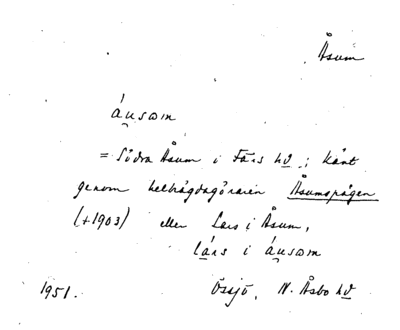 Åsum
áu̯sɷm
= Södra Åsum i Färs hd; känt
genom helbrägdagöraren Åsumspågen
(+1903) eller Lars i Åsum,
lárs i áu̯sɷm
1951. Össjö, N. Åsbo hd